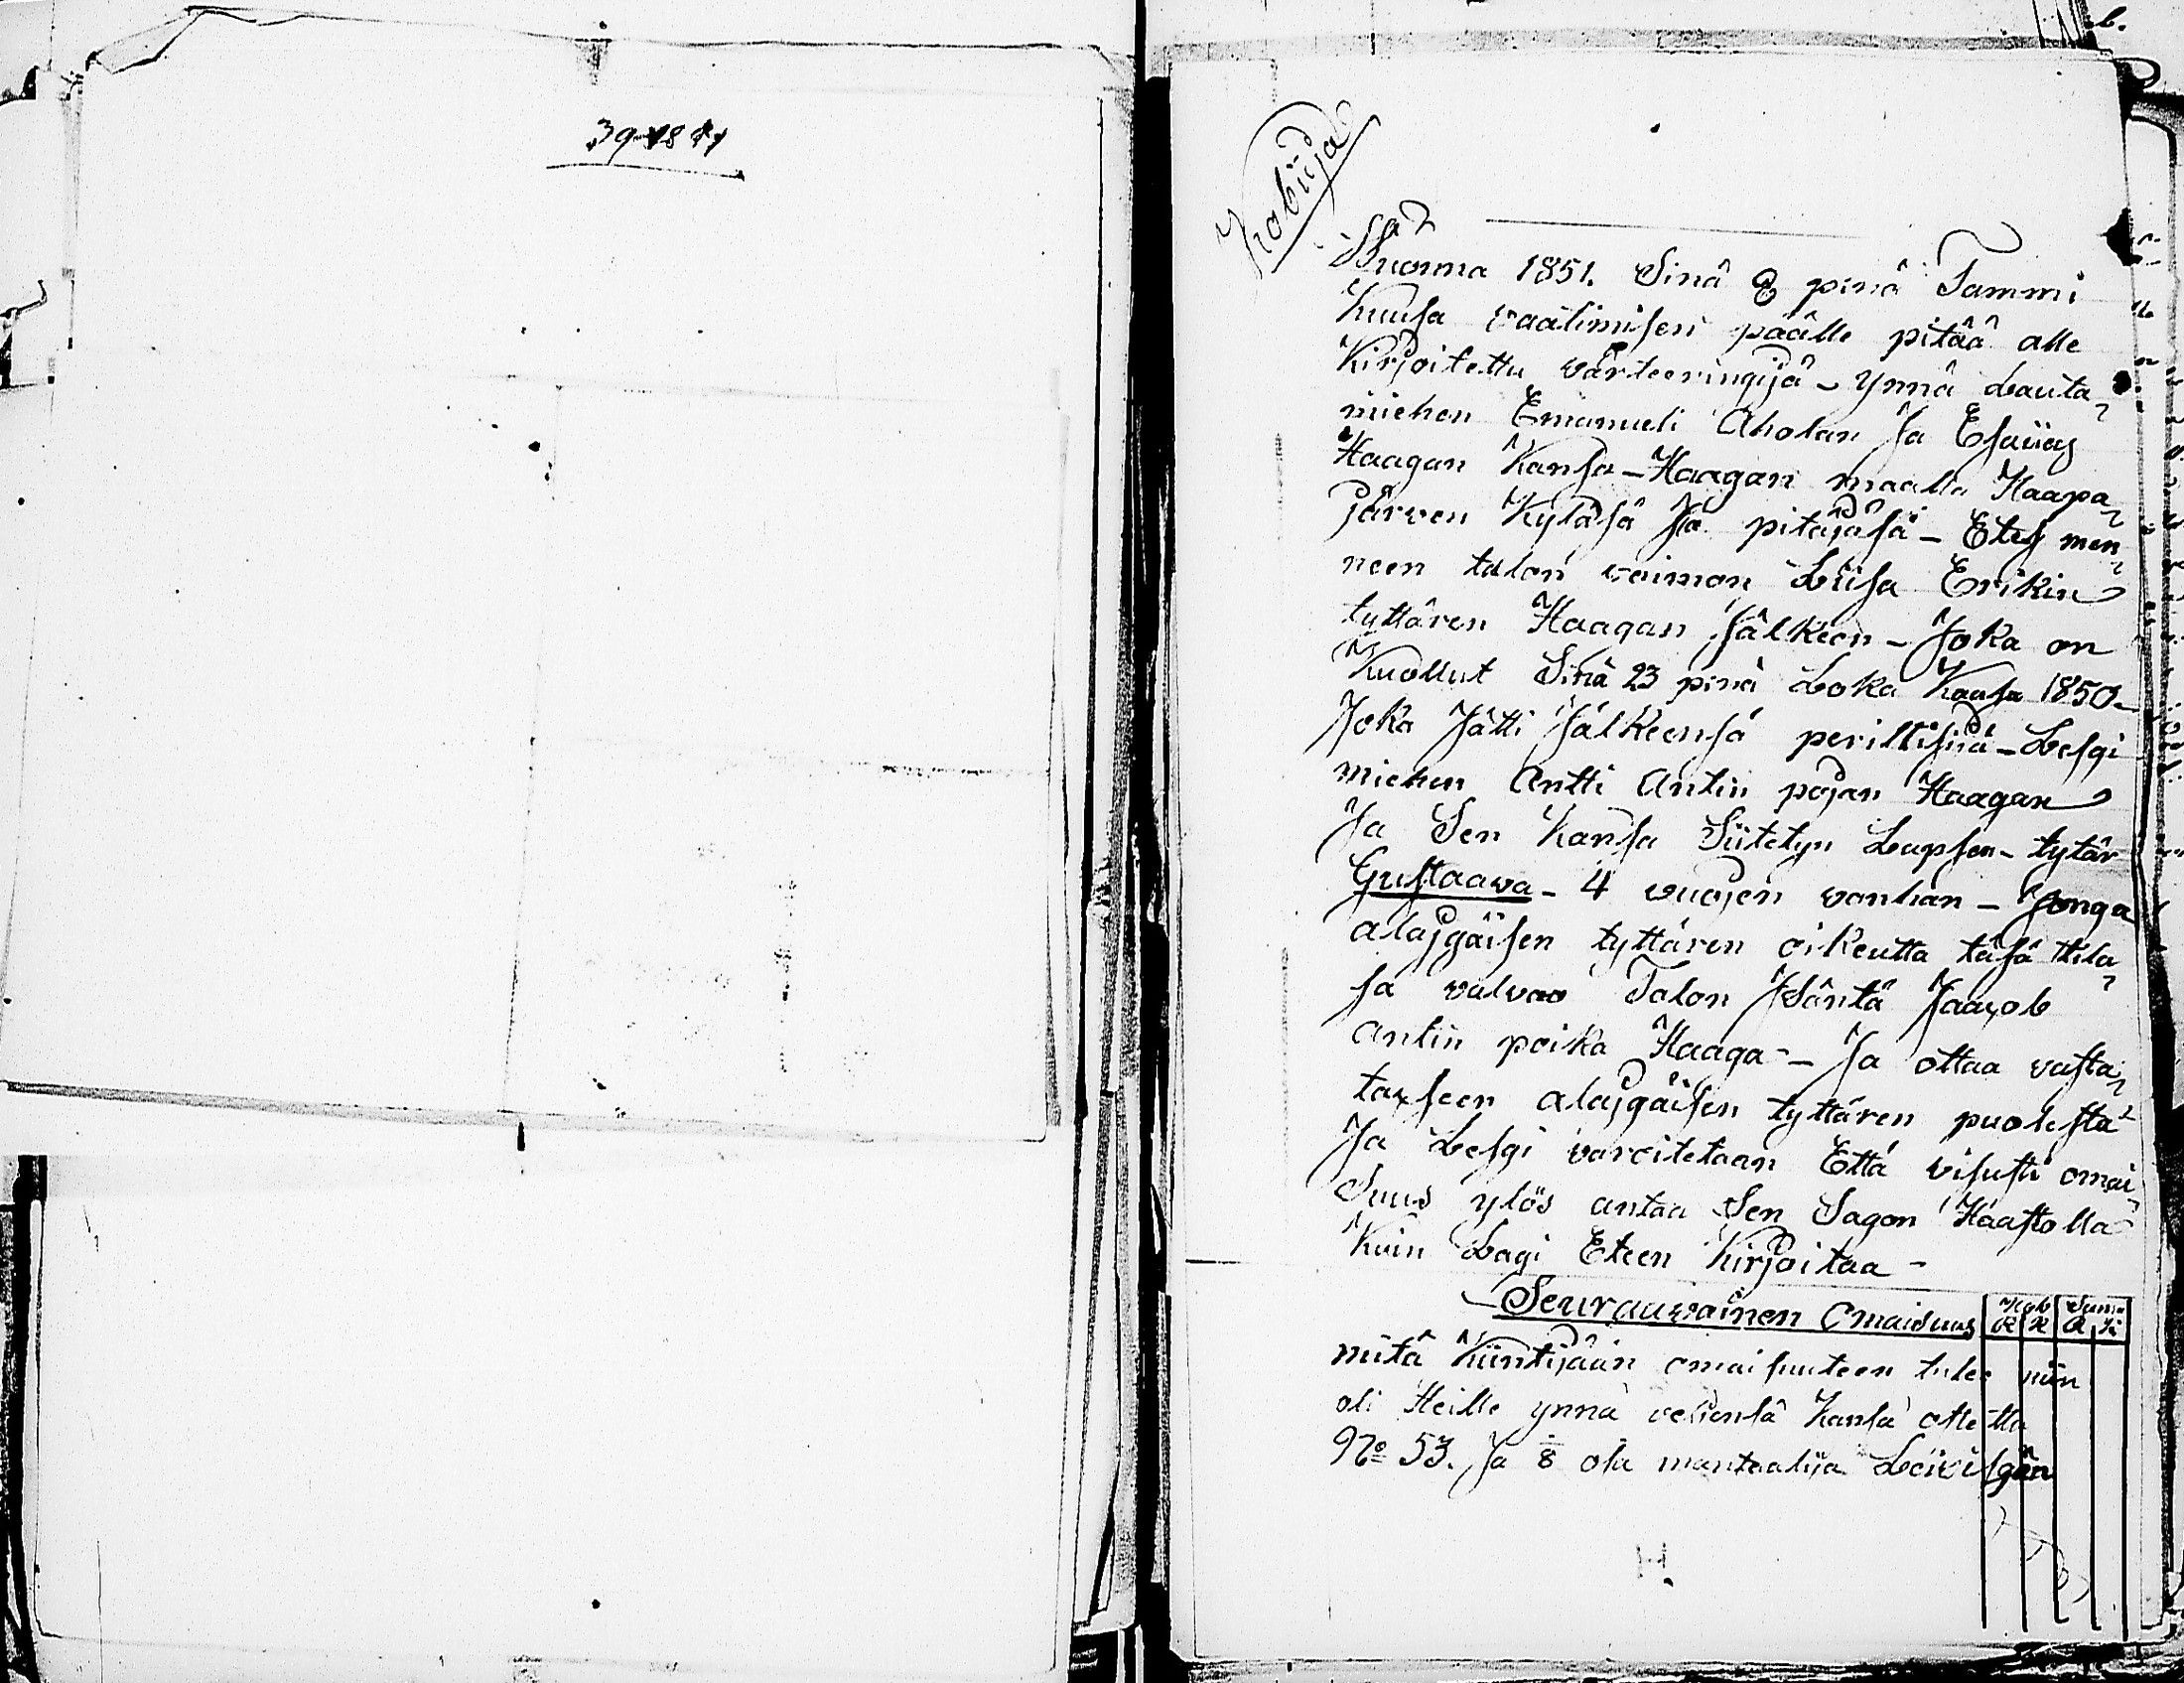 39-1851
Kobiija
Wuonna 1851. Sinä 8 penä Tammi
Kuusa vaatimisen päälle pitää alle
Kirjoitettu värteeringijä - ynnä Lauta-
miehen Emanueli Aholan Ja Esaiias
Haagan Kansa - Haagan maalla Haapa-
järven Kyläsä Ja pitäjäsä - Etes men-
neen talon vaimon Liisa Erikin
tyttären Haagan Jälkeen - Joka on
Kuollut Sinä 23 pinä Loka Kuusa 1850 -
Joka Jätti Jälkeensä perillisinä - Lesgi
miehen Antti Antin pojan Haagan
Ja Sen Kansa Siitetyn Lapsen - tytär
Gustaava - 4 vuojen vanhan - Jonga
alajgäisen tyttären oikeutta täsä tila-
sa valvoo Talon Jsäntä Jaacob
Antin poika Haaga - Ja ottaa vasta-
taxseen alajgäisen tyttären puolesta
Ja Lesgi varoitetaan Että visusti omai-
suus ylös antaa Sen Sagon Haastolla
Kuin Lagi Eteen Kirjoitaa -
Seuraavainen Omaisuus
R K R K
mitä Kiintijään omaisuuteen tulee niin
oli Heille ynnä veliensä Kansa otettu
No 53. Ja 8 osa mantaalija